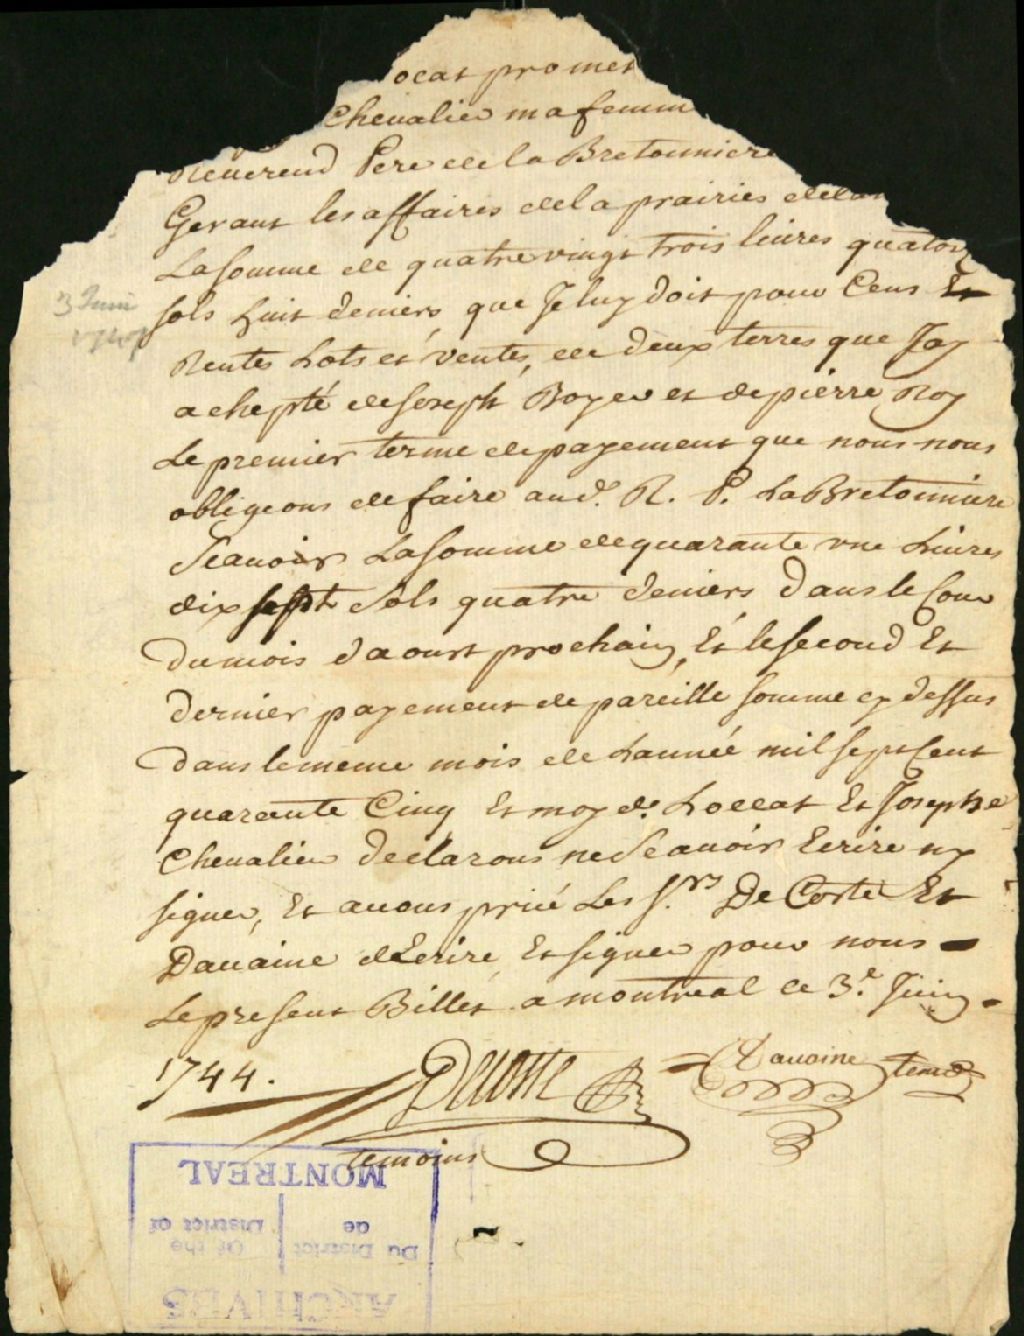 ocat promet
Chevalier ma femm
Reverend Pere de la Bretonniere
Gerant les affaires dela prairies dela
La somme de quatre vingt trois livres quators
sols huit deniers, que Je luy doit pour Cens Et
Rentes Lots et ventes, de deux terres que Jay
achepté de Joseph Boyer et de pierre Roy
Le premier terme de payement que nous nous
obligeons de faire aud. R. P. LaBretonniere
Scavoir La somme de quarante une Livres
dix sept Sols quatre deniers Dans le Cour
Du mois daoust prochain, Et le second Et
dernier payement de pareille somme cy dessus
Dans le meme mois de Lannée mil sept Cent
quarante Cinq Et moy d. Loccat Et Josephe
Chevalier declarons ne Scavoir Ecrire ny
signer, Et avons prié Les Srs De Coste Et
Davaine dEcrire Et signer pour nous -
Le present Billet a montreal ce 3e Juin -
3 Juin
1744.
Decoste
Davoine temoin
temoins
ARCHIVES
Du District Of the
de District of
MONTREAL